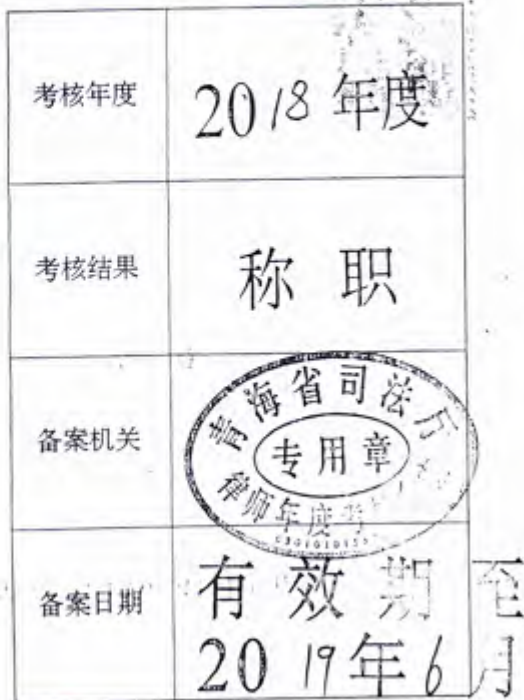 考核年度
2018年度
考核结果
称职
备案机关
青海省司法厅
专用章
律师年度考
备案日期
有效期至
2019年6月